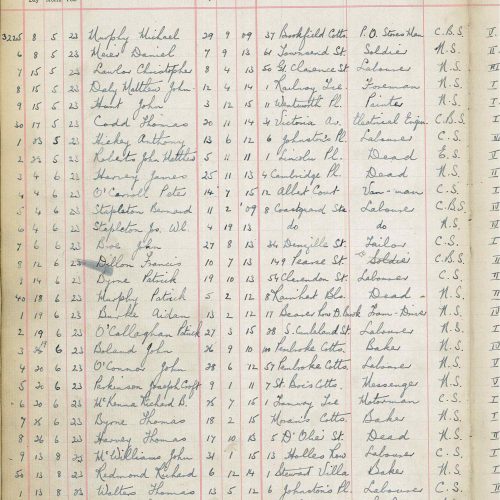 3225 8 5 23 Murphy Michael 29 9 09 37 Brookfield Cotts. P.O. Stores Man C.B.S. V
6 8 5 23 Meier Daniel 7 9 13 61 Townsend St. Soldier N.S.
7 15 5 23 Lawlor Christopher 8 4 13 50 Gt Clarence St. Labourer N.S.
8 15 5 23 Daly Matthew John 12 4 14 1 Railway Tce. Foreman N.S.
9 15 5 23 Hunt John 3 12 15 11 Wentworth Pl. Painter N.S.
30 17 5 23 Codd Thomas 20 11 14 Victoria Av. Electrical Engin. C.B.S.
1 23 5 23 Hickey Anthony 13 6 12 6 Johnston's Pl. Labourer C.S.
2 23 5 23 Roberts John Matthew 5 11 11 1 Lincoln Pl. Dead E.S.
3 4 6 23 Harvey James 25 11 13 4 Cambridge Pl. Dead N.S.
4 4 6 23 O'Carroll Peter 14 7 15 12 Albert Court Van-man C.S.
5 4 6 23 Stapleton Bernard 11 2 09 8 Coastguard Stn. Labourer C.B.S.
6 4 6 23 Stapleton Js. Wl. 4 19 13 do do N.S.
7 6 6 23 John 27 8 13 34 Denzille St. Tailor C.S.
8 12 6 23 Dillon Francis 10 7 13 149 Pearse St. Soldier C.B.S.
14 6 23 Byrne Patrick 19 10 13 54 Clarendon St. Labourer C.S.
40 18 6 23 Murphy Patrick 5 2 12 8 Dead N.S.
1 19 6 23 Burke Aidan 13 2 12 17 Beaver Row D. brook Tram-Driver N.S.
2 19 6 23 O'Callaghan Patrick 27 3 15 28 S. Cumberland St. Labourer N.S.
3 6 23 Boland John 26 9 10 100 Pembroke Cotts. Baker N.S.
4 20 6 23 O'Connor John 28 6 12 57 Pembroke Cotts. Labourer N.S.
5 20 6 23 Parkinson Joseph 9 1 11 7 St Bois Cotts. Messenger N.S.
6 20 6 23 McKenna Richard B. 7 15 1 Tramway Tce Motorman C.S.
7 6 23 Byrne Thomas 18 2 15 Cotts. Baker N.S.
8 26 6 23 Harvey Thomas 17 10 13 5 D'Olier St. Dead N.S.
9 13 8 23 McWilliams John 31 1 15 13 Holles Row Labourer C.S.
50 13 8 23 Redmond Richard 6 12 14 1 Stewart Villa Baker N.S.
1 15 8 23 Walters Thomas 13 5 12 6 Johnston's Pl. Labourer C.S.